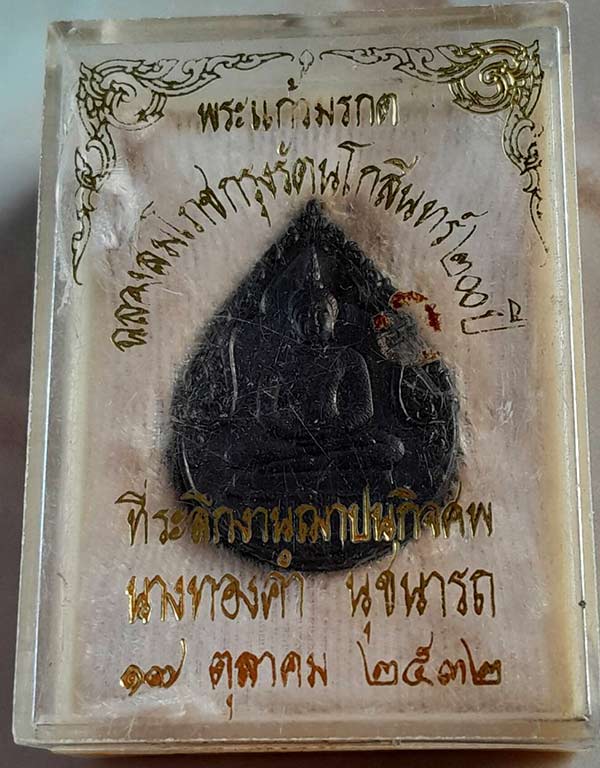 พระแก้วมรกต
ฉลองสมโภชกรุงรัตนโกสินทร์ ๒๐๐ ปี
ที่ระลึกงานฌาปนกิจศพ
นางทองคำ นุชนารถ
๑๗ ตุลาคม ๒๕๓๒